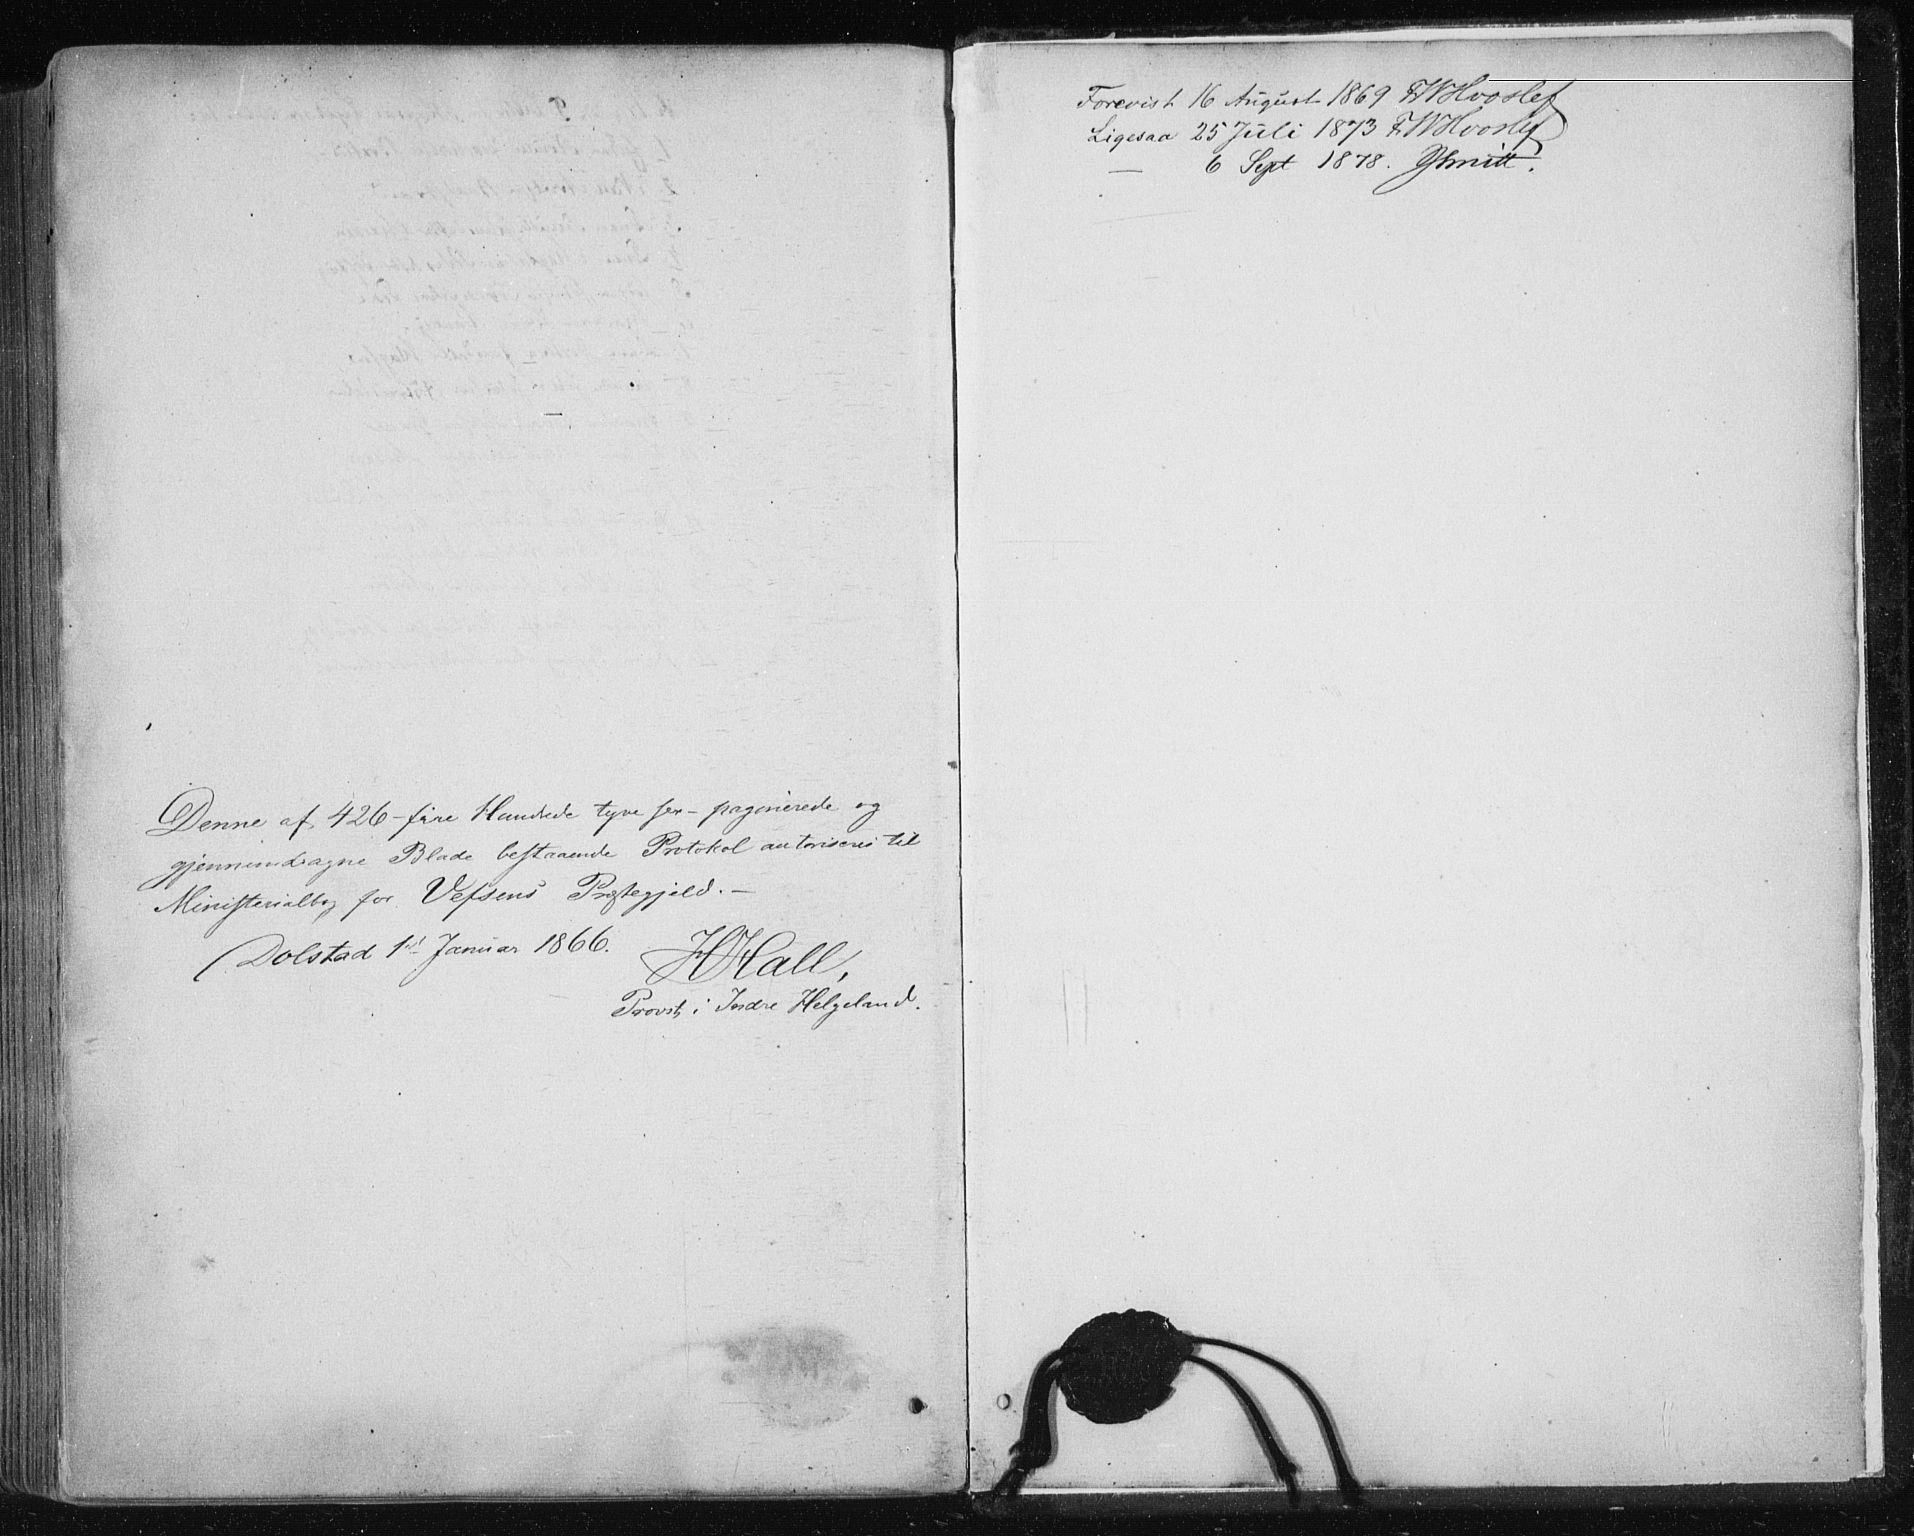 Denne af 426 - fire Hundrede tyve sex - paginerede og
gjennemdragne Blade bestaaende Protokol autoriseres til
Ministerialbog for Vefsens Præstegjeld. -
Dolstad 1st Januar 1866.
HHall,
Provst i Indre Helgeland.
Forevist 16 August 1869 FWHvoslef
Ligesaa 25 Juli 1873 FWHvoslef
— 6 Sept 1878.